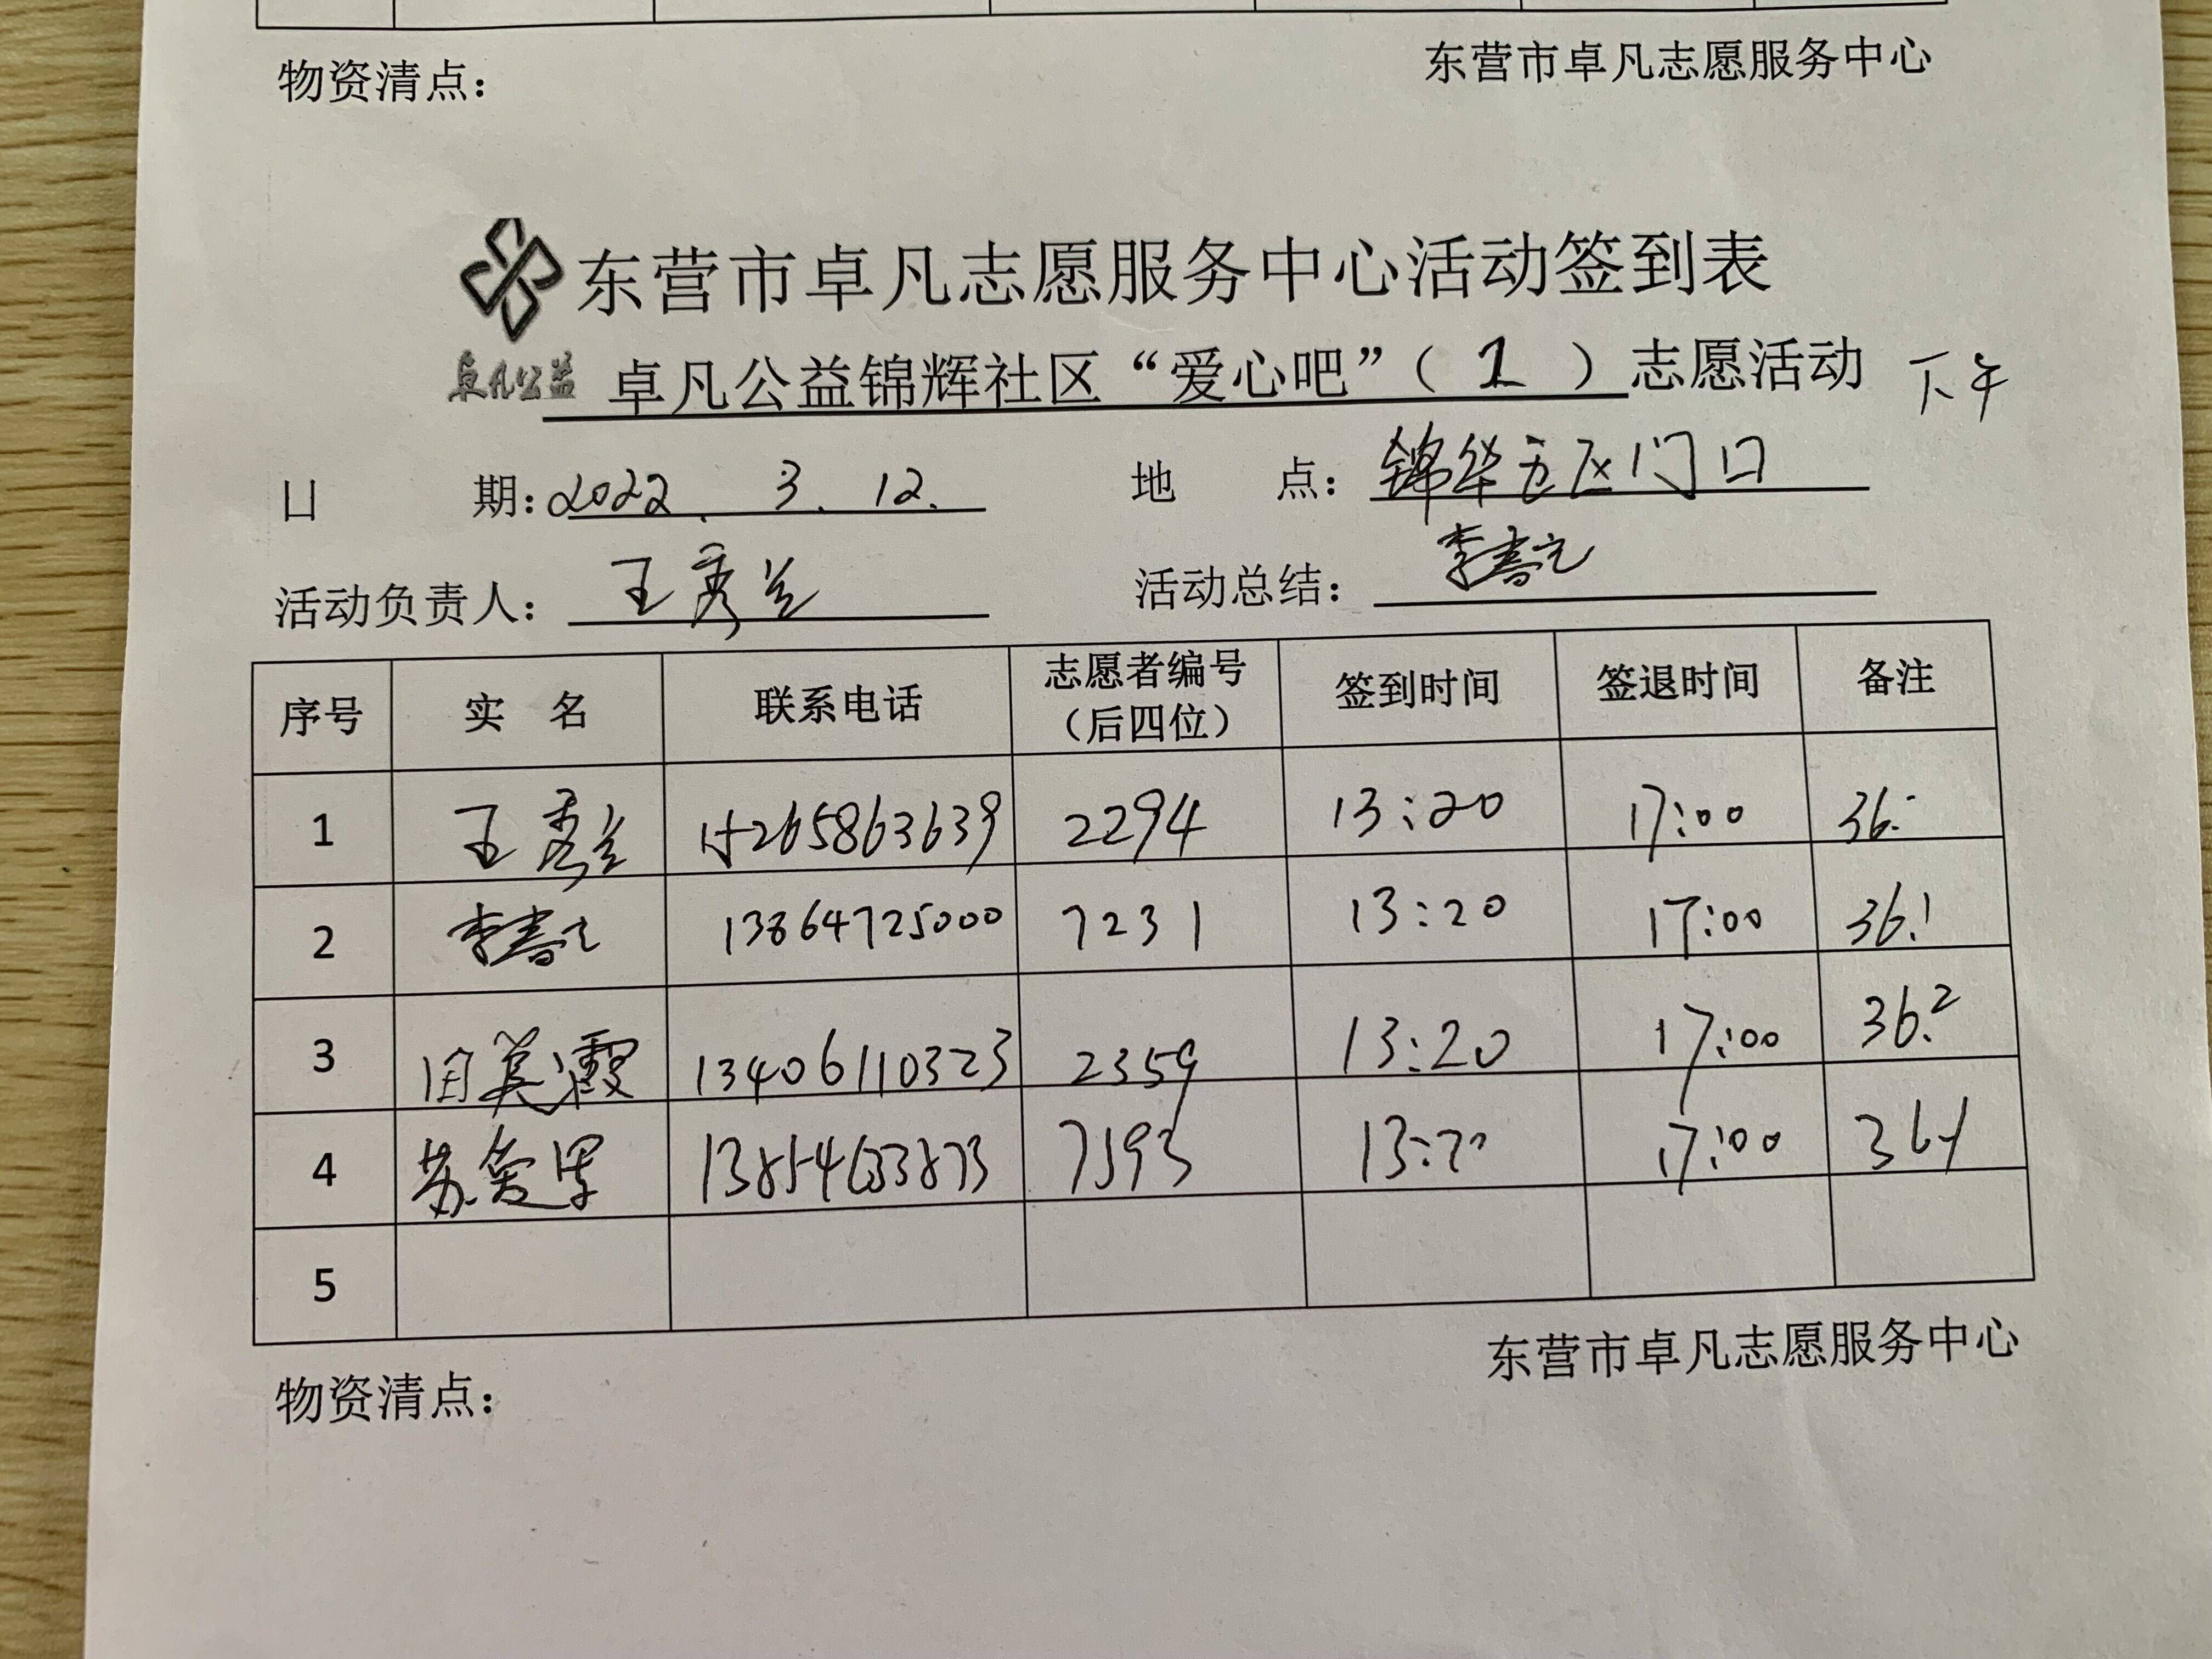 物资清点：
东营市卓凡志愿服务中心
东营市卓凡志愿服务中心活动签到表
卓凡公益 卓凡公益锦辉社区“爱心吧”（1）志愿活动 下午
日 期：2022. 3. 12. 地 点：锦华五区门口
活动负责人：王秀兰 活动总结：李春元
序号 实 名 联系电话 志愿者编号（后四位） 签到时间 签退时间 备注
1 王秀兰 15265863639 2294 13:20 17:00 36.
2 李春元 13864725000 7231 13:20 17:00 36.1
3 闫英霞 13406110323 2359 13:20 17:00 36.2
4 苏 13854633873 7593 17:00
5
东营市卓凡志愿服务中心
物资清点：